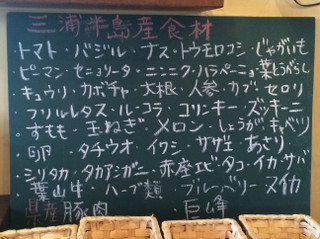 三浦半島産食材
トマト・バジル・ナス・トウモロコシ・じゃがいも
ピーマン・セニョリータ・ニンニク・ハラペーニョ・葉とうがらし
キュウリ・カボチャ・大根・人参・カブ・セロリ
フリルレタス・ルーコラ・コリンキー・ズッキーニ
すもも・玉ねぎ・メロン・しょうが・キャベツ
卵・タチウオ・イワシ・サザエ・あさり
シリタカ・タカアシガニ・赤座エビ・タコ・イカ・サバ
葉山牛・ハーブ類・ブルーベリー・スイカ
県産豚肉 巨峰